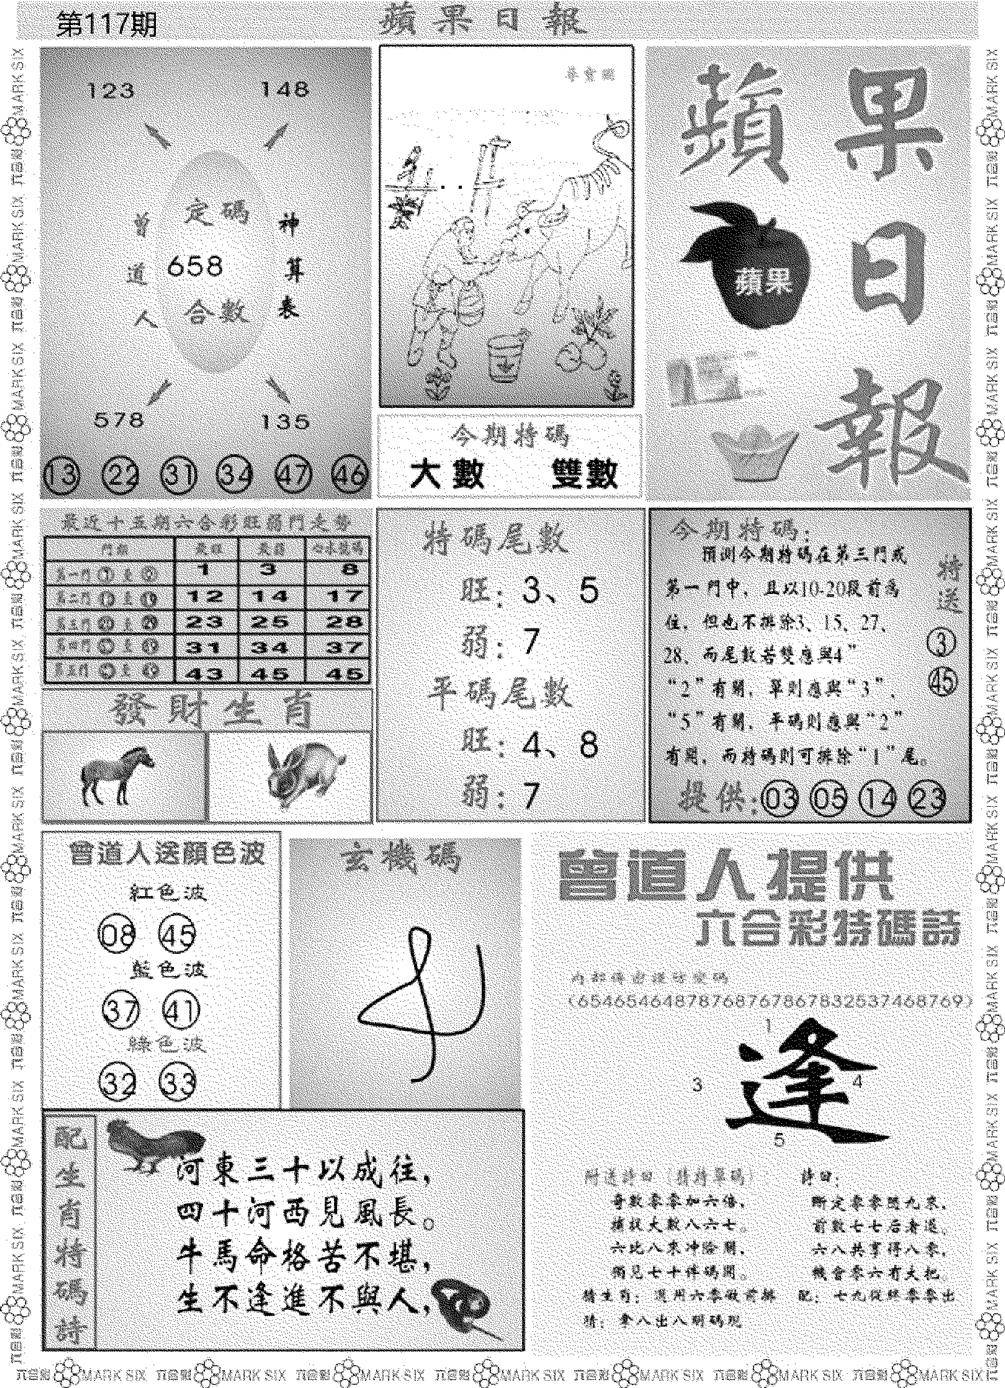 第117期
蘋果日報
123
148
曾道人
定碼
658
合數
神算表
578
135
13 22 31 34 47 46
尋寶圖
今期特碼
大數 雙數
蘋果日報
蘋果
最近十五期六合彩旺弱門走勢
門類 最旺 最弱 心水號碼
第一門 1 3 8
第二門 12 14 17
第三門 23 25 28
第四門 31 34 37
第五門 43 45 45
發財生肖
特碼尾數
旺：3、5
弱：7
平碼尾數
旺：4、8
弱：7
今期特碼：
預測今期特碼在第三門或
第一門中，且以10-20段前爲
住，但也不排除3、15、27、
28、而尾數若雙應與4”
“2”有關，單則應與“3”、
“5”有關，平碼則應與“2”
有關，而特碼則可排除“1”尾。
特送
3
45
提供：03 05 14 23
曾道人送顏色波
紅色波
08 45
藍色波
37 41
綠色波
32 33
玄機碼
曾道人提供
六合彩特碼詩
內部傳密謹防密碼
(6546546487876876786783253746 8769)
1
逢
3
4
5
附送詩曰（猜特單碼）
奇數零零加六倍，
捕捉大數八六七。
六比八來冲險關，
獨見七十伴碼開。
詩曰：
斷定零零隨九來，
前數七七后者退。
六八共享得八零，
機會零六有大把。
猜生肖：選用六零做前排
配：七九從終零零出
猜：拿八出八明碼現
配生肖特碼詩
河東三十以成往，
四十河西見風長。
牛馬命格苦不堪，
生不逢進不與人，
六合彩 MARK SIX